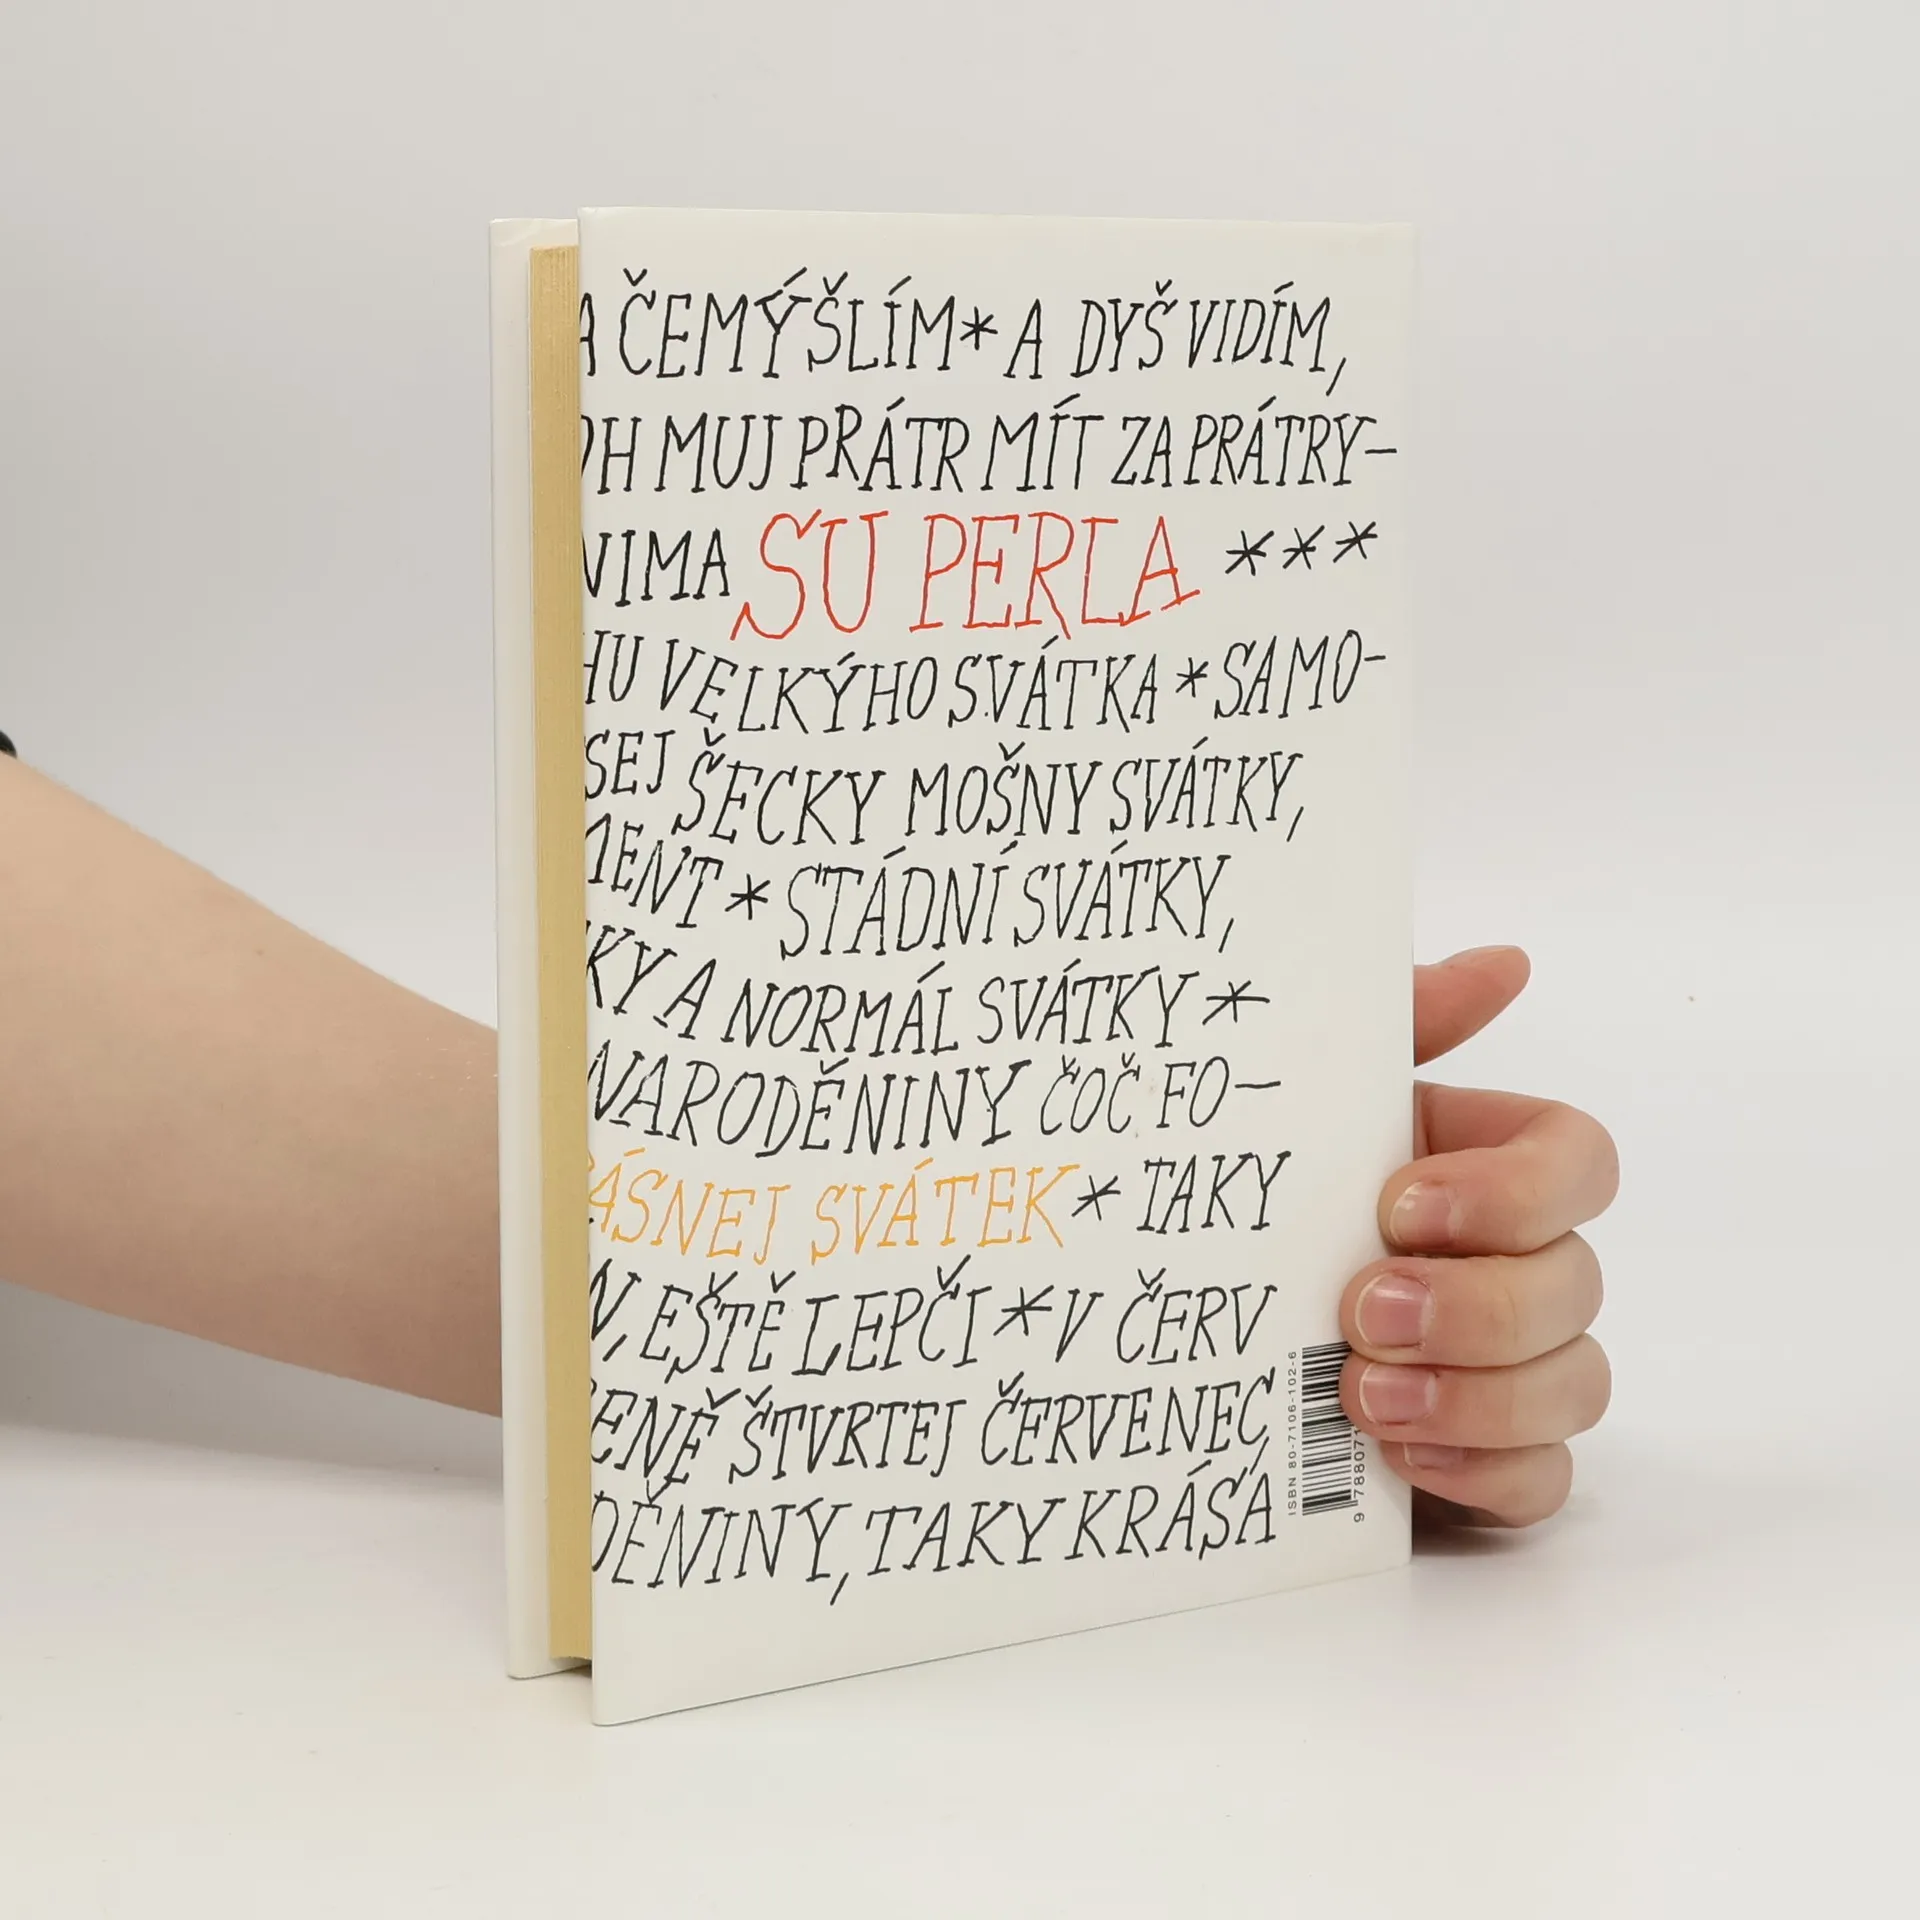 A ČEMÝŠLÍM * A DYŠ VIDÍM,
MUJ PRÁTR MÍT ZA PRÁTRY-
NIMA SU PERLA ***
HU VELKÝHO SVÁTKA * SAMO-
SEJ ŠECKY MOŠNY SVÁTKY,
MENT * STÁDNÍ SVÁTKY,
KY A NORMÁL SVÁTKY *
NARODĚNINY ČOČ FO-
ÁSNEJ SVÁTEK * TAKY
N, EŠTĚ LEPČI * V ČERV
ENĚ ŠTVRTEJ ČERVENEC,
DĚNINY, TAKY KRÁSA
ISBN 80-7106-102-6
9 788071